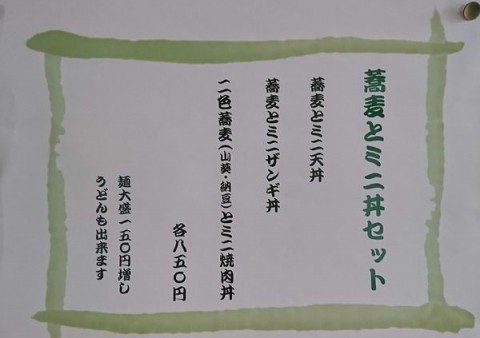 蕎麦とミニ丼セット
蕎麦とミニ天丼
蕎麦とミニザンギ丼
二色蕎麦(山葵・納豆)とミニ焼肉丼
各八五〇円
麺大盛一五〇円増し
うどんも出来ます